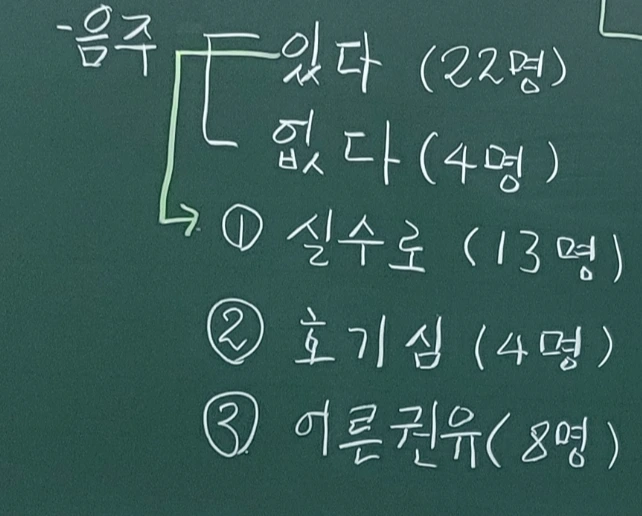 -음주 있다 (22명)
없다 (4명)
① 실수로 (13명)
② 호기심 (4명)
③ 어른권유 (8명)